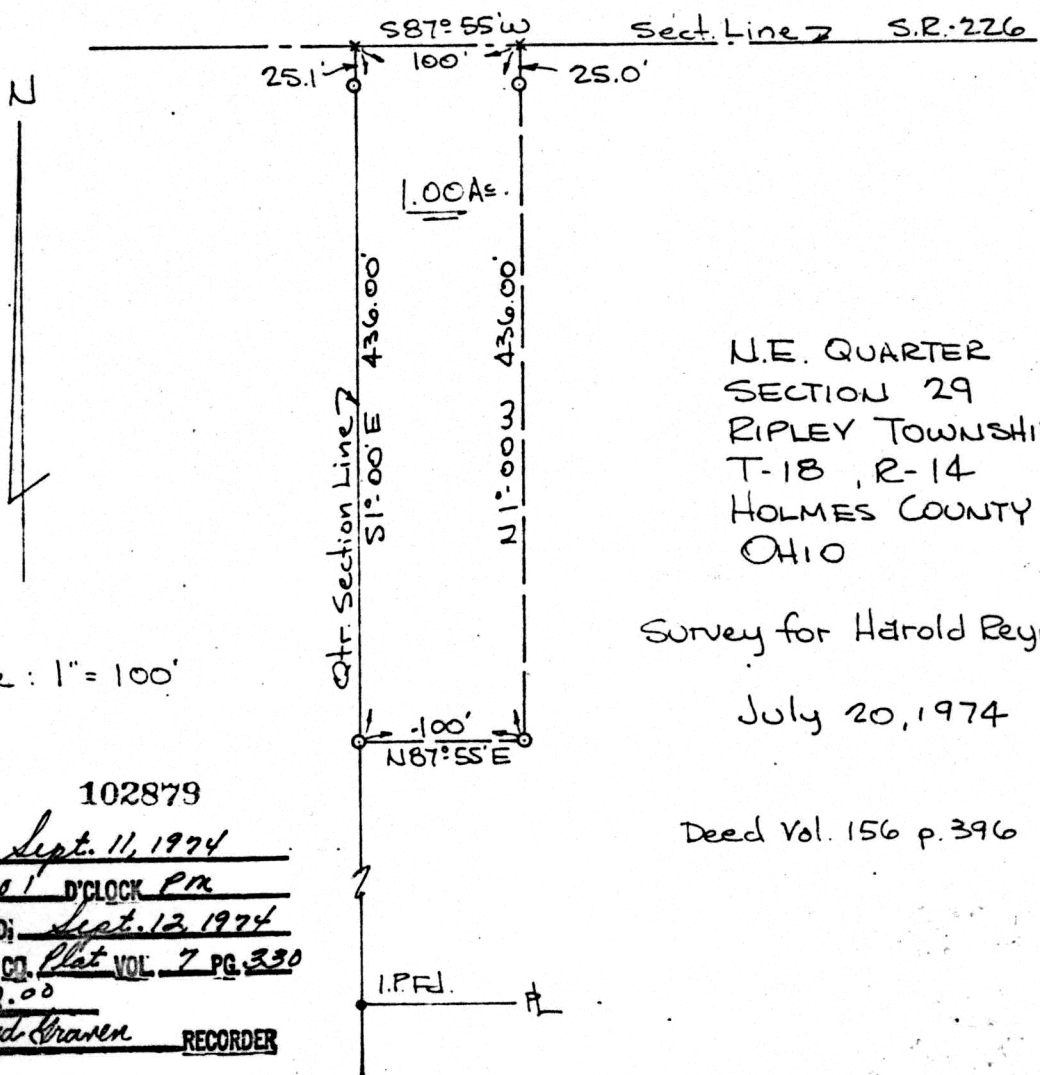 S87°55'W Sect. Line S.R.-226
100'
25.1' 25.0'
N
1.00 Ac.
Qtr. Section Line
S1°00'E 436.00'
N1°00'W 436.00'
N.E. QUARTER
SECTION 29
RIPLEY TOWNSHI
T-18, R-14
HOLMES COUNTY
OHIO
Survey for Harold Rey
: 1" = 100'
July 20, 1974
100'
N87°55'E
102879
Sept. 11, 1974
1 O'CLOCK PM
Sept. 12 1974
CO. Plat VOL. 7 PG. 330
.00
Graven RECORDER
Deed Vol. 156 p. 396
I.P.Fd. PL